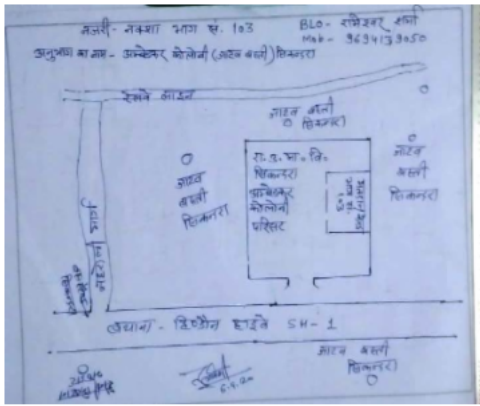 नजरी - नक्शा भाग सं. 103
BLO - रामेश्वर शर्मा
Mob - 9694139050
अनुभाग का नाम - अम्बेडकर कोलोनी (जाटव बस्ती) सिकन्दरा
रेलवे लाइन
जाटव बस्ती
सिकन्दरा
जाटव
बस्ती
सिकन्दरा
रा. उ. मा. वि.
सिकन्दरा
अम्बेडकर
कोलोनी
परिसर
103
जाटव
बस्ती
सिकन्दरा
बयाना - हिण्डौन हाइवे SH-1
जाटव बस्ती
सिकन्दरा
6.9.20